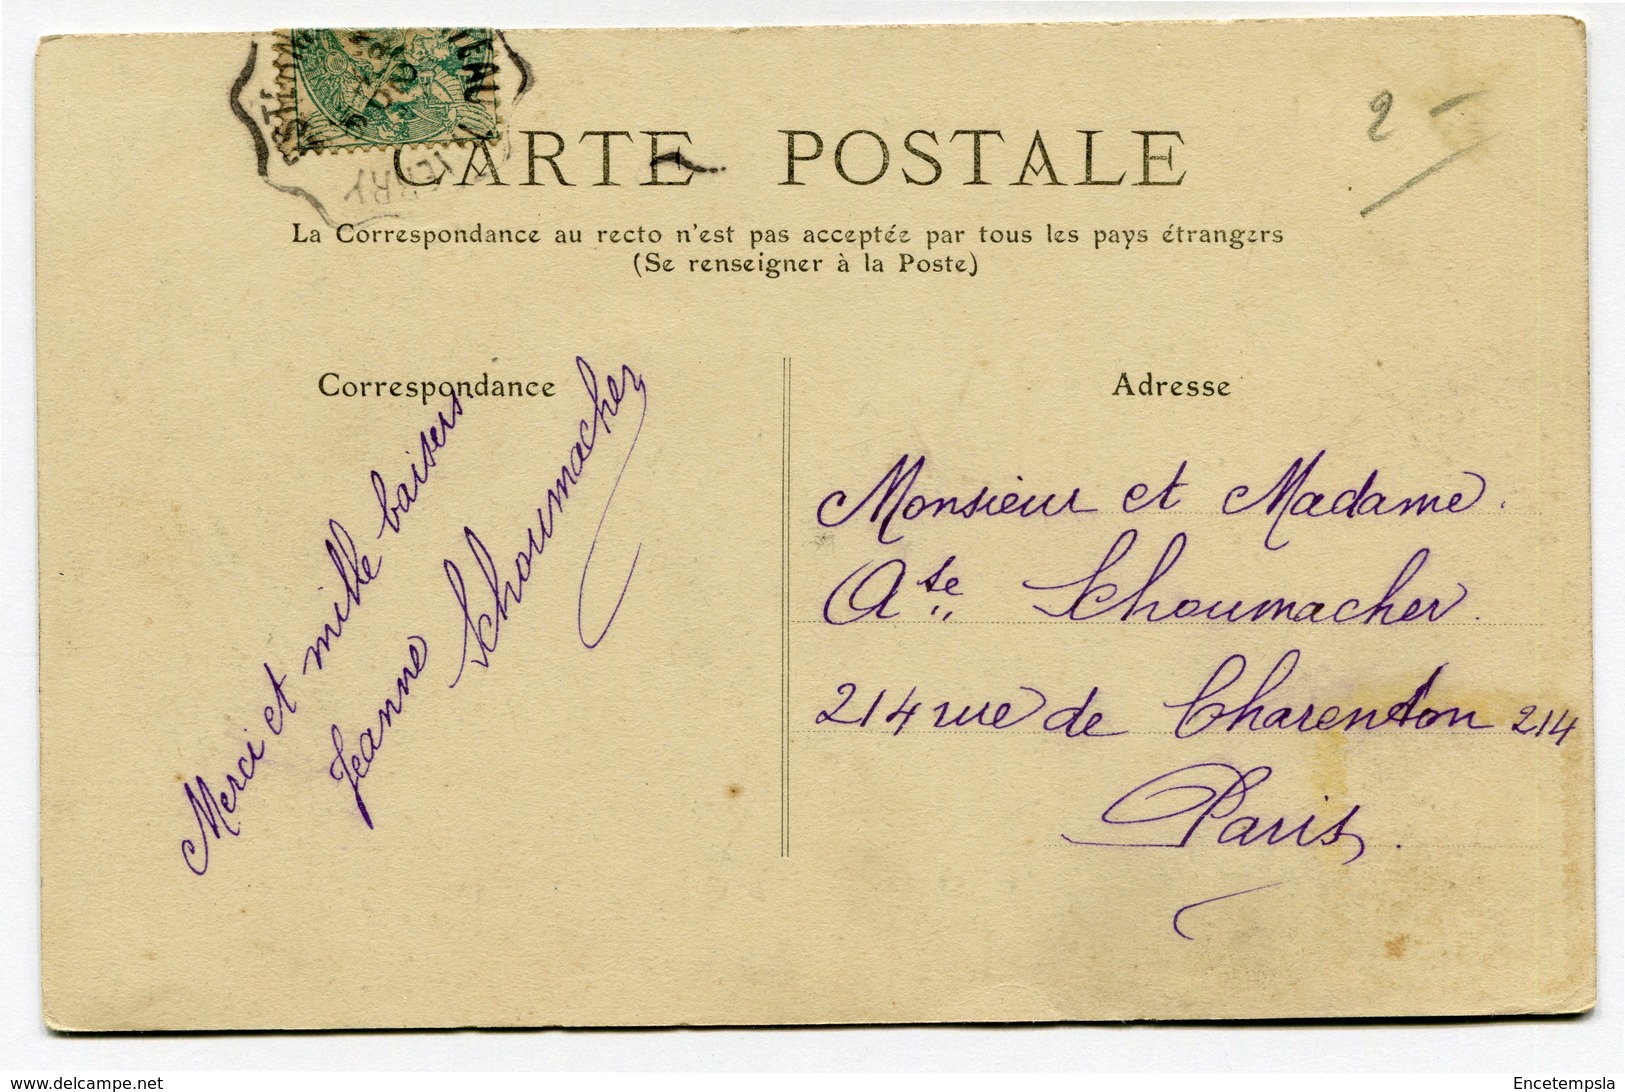 CARTE POSTALE
La Correspondance au recto n'est pas acceptée par tous les pays étrangers
(Se renseigner à la Poste)
2 -
Correspondance
Merci et mille baisers
Jeanne Schoumacher
Adresse
Monsieur et Madame.
Aste Schoumacher.
214 rue de Charenton 214
Paris.
www.delcampe.net
Encetempsla